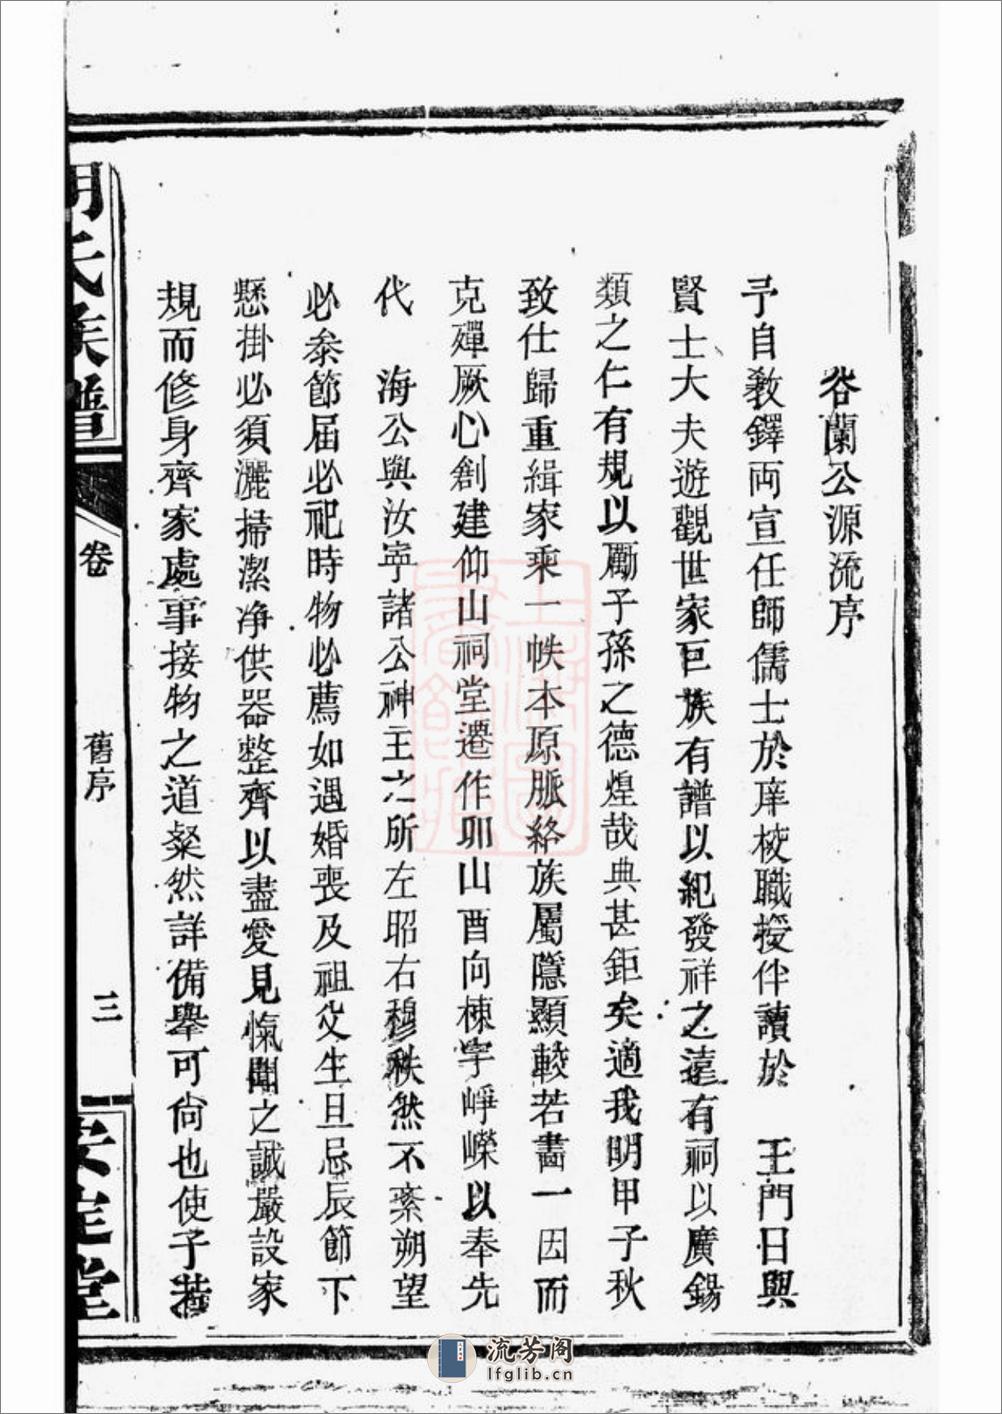 谷蘭公源流序
予自敎鐸両宣任師儒士於庠校職授伴讀於　王門日與
賢士大夫遊觀世家巨族有譜以紀發祥之遠有祠以廣錫
類之仁有規以勵子孫之德煌哉典甚鉅矣適我明甲子秋
致仕歸重緝家乘一帙本原脈絡族屬隱顯較若畫一因而
克殫厥心創建仰山祠堂遷作卯山酉向棟宇崢嶸以奉先
代　海公與汝寧諸公神主之所左昭右穆秩然不紊朔望
必叅節届必祀時物必薦如遇婚喪及祖父生旦忌辰節下
懸掛必須灑掃潔净供器整齊以盡愛見愾聞之誠嚴設家
規而修身齊家處事接物之道粲然詳備舉可尙也使子若
胡氏族譜
卷
舊序
三
安定堂
上海圖書館藏
流芳阁
lfglib.cn